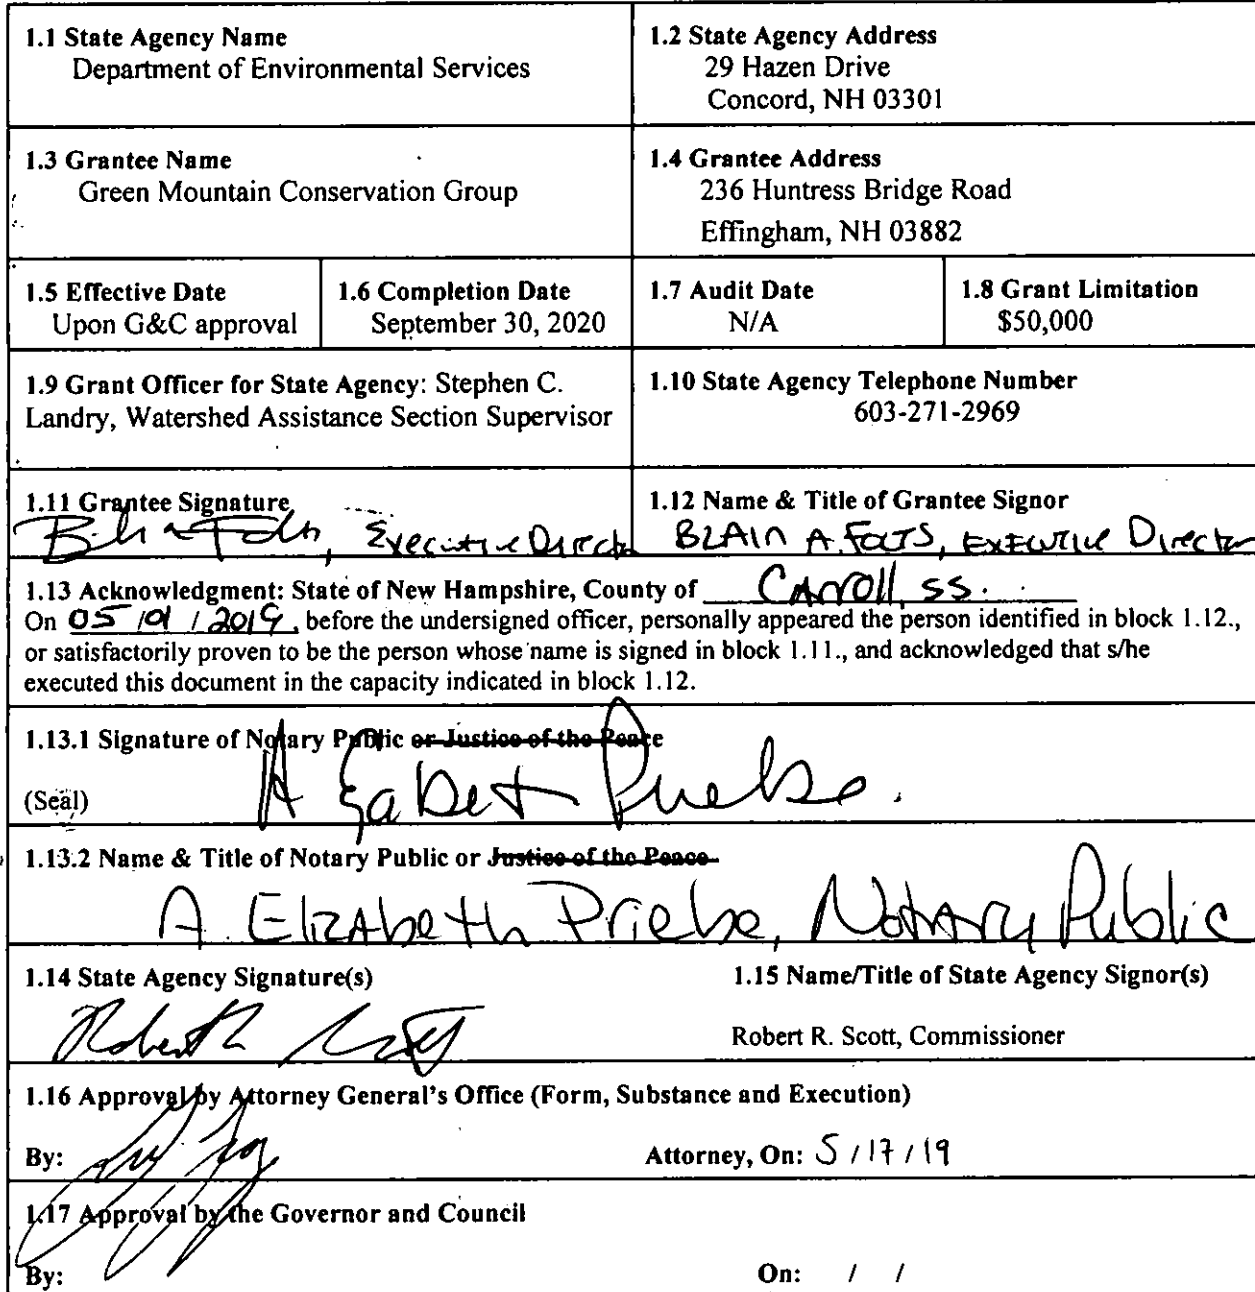 1.1 State Agency Name
Department of Environmental Services
1.2 State Agency Address
29 Hazen Drive
Concord, NH 03301
1.3 Grantee Name
Green Mountain Conservation Group
1.4 Grantee Address
236 Huntress Bridge Road
Effingham, NH 03882
1.5 Effective Date
Upon G&C approval
1.6 Completion Date
September 30, 2020
1.7 Audit Date
N/A
1.8 Grant Limitation
$50,000
1.9 Grant Officer for State Agency: Stephen C.
Landry, Watershed Assistance Section Supervisor
1.10 State Agency Telephone Number
603-271-2969
1.11 Grantee Signature
Executive Director
1.12 Name & Title of Grantee Signor
BLAIN A. FOLTS, EXECUTIVE Director
1.13 Acknowledgment: State of New Hampshire, County of CArroll, ss.
On 05 / 01 / 2019, before the undersigned officer, personally appeared the person identified in block 1.12.,
or satisfactorily proven to be the person whose name is signed in block 1.11., and acknowledged that s/he
executed this document in the capacity indicated in block 1.12.
1.13.1 Signature of Notary Public or Justice of the Peace
(Seal)
1.13.2 Name & Title of Notary Public or Justice of the Peace
A. ElizAbeth Priebe, NotAry Public
1.14 State Agency Signature(s)
1.15 Name/Title of State Agency Signor(s)
Robert R. Scott, Commissioner
1.16 Approval by Attorney General's Office (Form, Substance and Execution)
By:
Attorney, On: 5 / 17 / 19
1.17 Approval by the Governor and Council
By:
On: / /